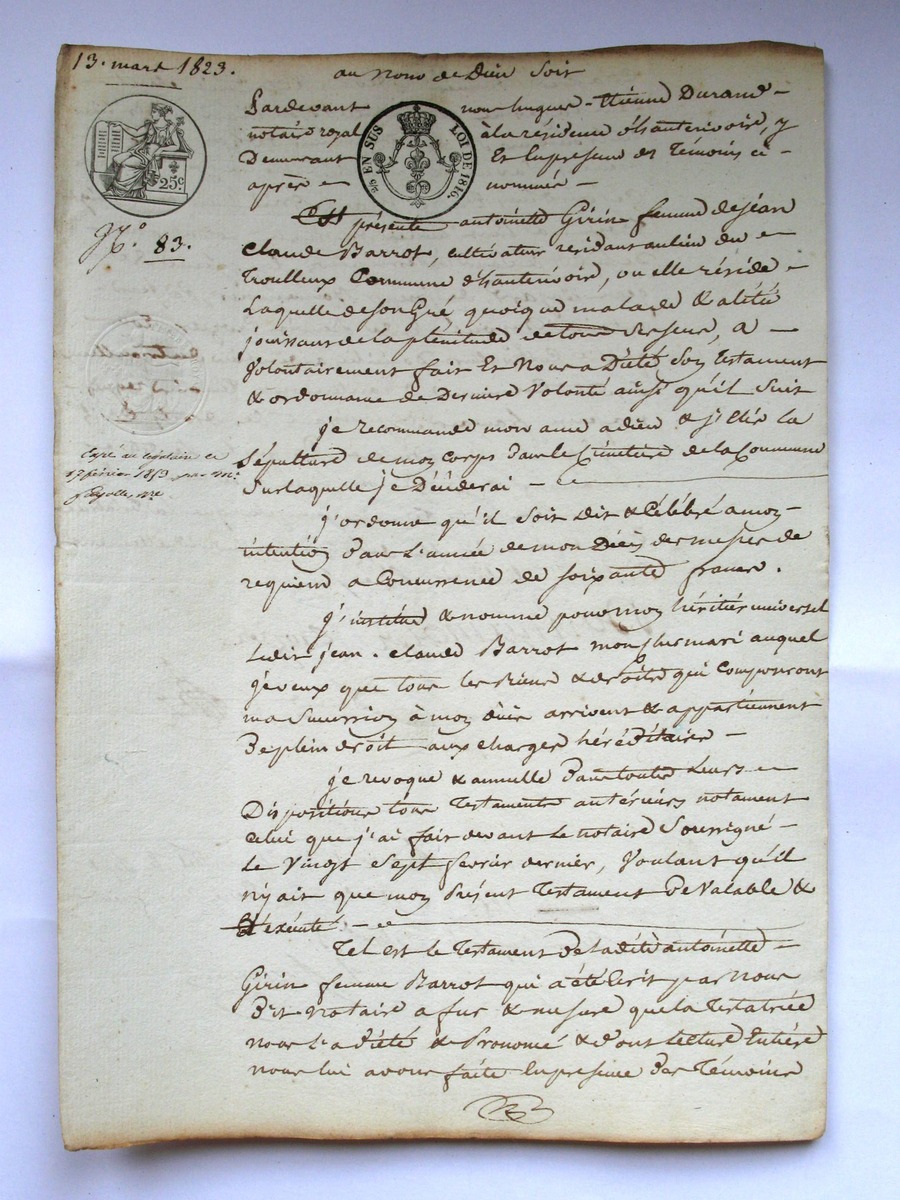 13. mars 1823.
au Nom de Dieu Soit
Pardevant nous hugues-Etienne Durand -
notaire royal à la résidence d'hauterivoire, y
Demeurant Et En presence des Témoins ci-
après - nommés -
EN SUS LOI DE 1816.
25c
N.° 83.
Est présente antoinette Girin femme de jean
Claude Barrot, cultivateur residant au lieu du -
Troulleux Commune d'hauterivoire, ou elle réside -
Laquelle de son Gré quoique malade & alitée
jouissant de la plénitude de tous ses sens, a -
Volontairement fait Et Nous a Dicté Son Testament
& ordonnance de Derniere Volonté ainsi qu'il Suit
je recommande mon ame a dieu & j'Elis la
Sépulture de mon Corps dans le Cimetiere de la Commune
Sur laquelle je Décéderai -
17 février 1853 par M.e
j'ordonne qu'il soit Dit & Célébré a mon -
intention Dans L'année de mon Décès des messes de
requiem a Concurrence de soixante francs.
j'institue & nomme pour mon héritier universel
Ledit jean-claude Barrot mon cher mari auquel
je veux que tous les Biens & droits qui Composeront
ma Succession à mon décès arrivent & appartiennent
De plein droit aux charges héréditaires -
je revoque & annulle Dans toutes Leurs -
Dispositions tous Testaments antérieurs notament
Celui que j'ai fait devant Le notaire Soussigné -
Le Vingt Sept fevrier dernier, Voulant qu'il
n'y ait que mon Présent Testament De Valable &
d'exécuté. -
Tel est le Testament de ladite antoinette -
Girin femme Barrot qui a été Ecrit par Nous
Dit Notaire a fur & mesure que la Testatrice
nous L'a dicté & Prononcé & dont Lecture Entière
nous lui avons faite En presence Des Témoins